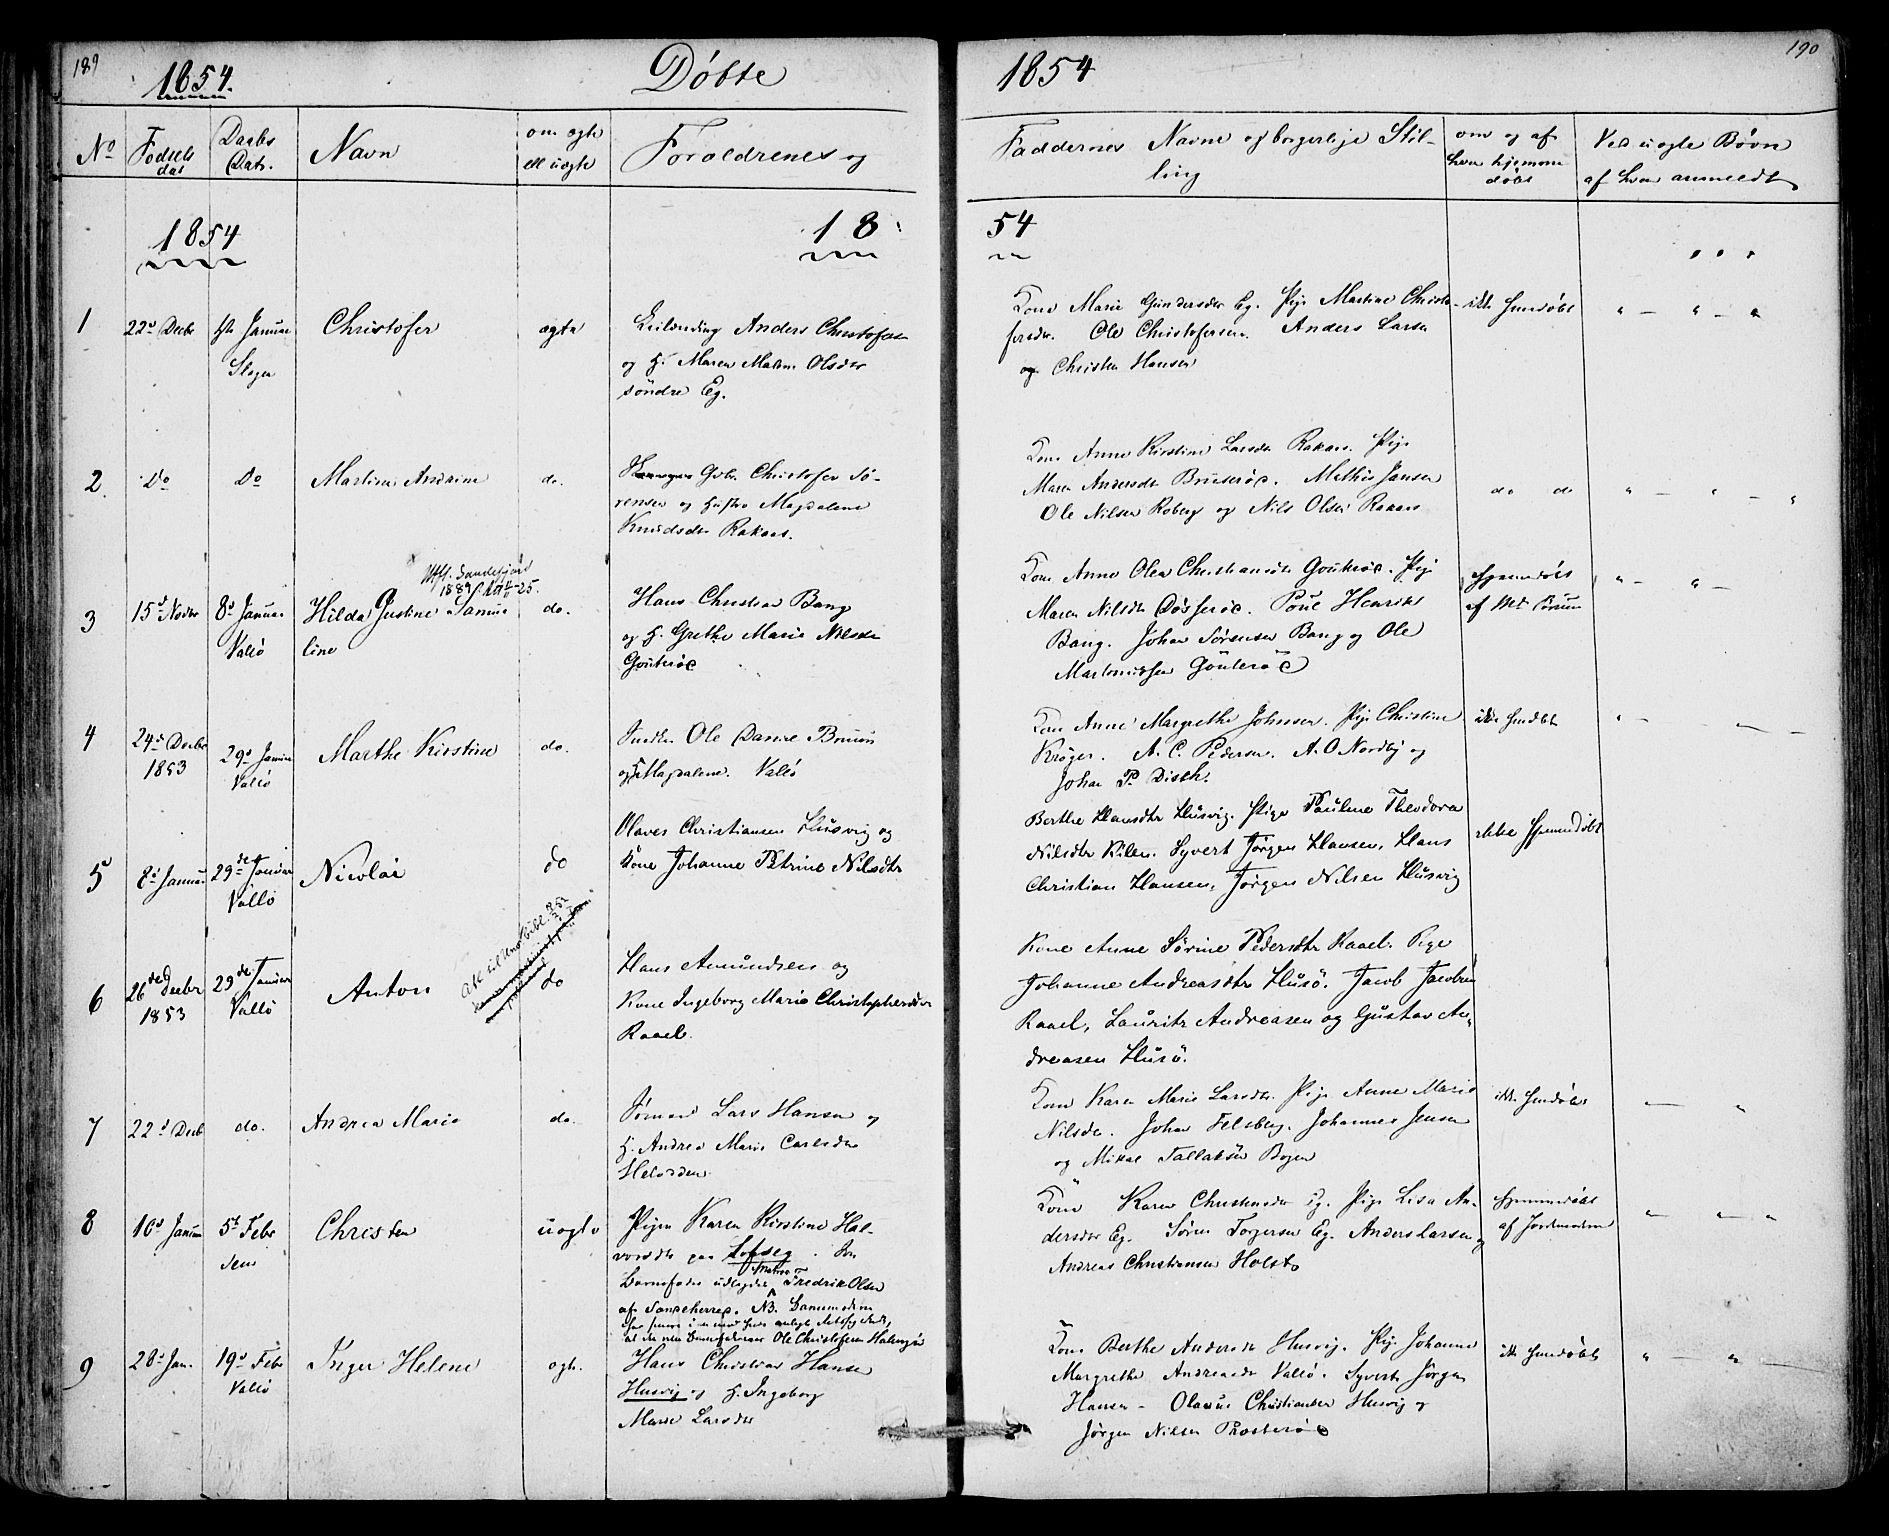 189
1854.
Døbte
No
Fødsels
dat
Daabs
Dato.
Navn
om ægte
ell uægte
Forældrenes og
1854
18
1
22d Decbr
Januar
Slagen
Christofer
ægte
Leilending Anders Christofersen
og H. Maren Malene Olsdtr
söndre Eg.
2.
Do
Do
Martine Andrine
do.
Gbr. Christofer Sö-
rensen og Hustro Magdalene
Knudsdtr Rakaas.
3
15d Novbr
8d Januar
Vallö
Sandefjord
Hilda Justine Janna
line
do.
Hans Christian Bang
og H. Grethe Marie Nilsdtr
4
24d Decbr
1853
29d Januar
Vallö
Marthe Kirstine
do.
Ole Daniel Bruun
og H. Magdalene. Vallö
5
8d Januar
29de Januar
Vallö
Nicolai
do
Olaves Christiansen Husvig og
Kone Johanne Petrine Nilsdtr
6
26de Decbr
1853
29de Januar
Vallö
Anton
do
Hans Amundsen og
Kone Ingeborg Marie Christophersdtr
Raael.
7
22d Decb
do.
Andrea Marie
do.
Sömand Lars Hansen og
H. Andrea Marie Carlsdtr
8
10d Januar
5te Febr
Sem
Christen
uægte
Pigen Karen Kirstine Hal-
vorsdtr paa
Barnefader udlagdes Matros Fredrik Olsen
af NB.
Ole Christofersen
9
28d Jan.
19d Febr
Vallö
Inger Helene
ægte.
Hans Christian Hansen
Husvig og H. Ingeborg
Marie Larsdtr
190
1854
Faddernes Navne og borgerlige Stil-
ling
om og af
hvem hjemme
døbt
Ved uægte Børn
af hvem anmeldt
54
Kone Marie Gundersdtr Eg. Pige Martine Christo-
fersdtr. Ole Christofersen. Anders Larsen
og Christen Hansen
ikke hjemdøbt
Kone Anne Kirstine Larsdtr Rakaas. Pige
Maren Andersdtr Mathis Jansen
Ole Nilsen Roberg og Nils Olsen Rakaas
do do
Kone Anne Olea Christiansdtr Pige
Maren Nilsdtr Poul Henrik
Bang. Johan Sørensen Bang og Ole
Hjemmedøbt
af
Kone Anne Margrethe Johnsen. Pige Christine
Krøger. A. C. Pedersen. A. O Nordby og
Johan P. Disch.
ikke hjmdøbt
Berthe Hansdtr Husvig. Pige Pauline Theodora
Nilsdtr Kilen. Syvert Jørgen Hansen, Hans
Christian Hansen, Jørgen Nilsen Husvig
ikke Hjemmedøbt
Kone Anne Sörine Pedersdtr Raael. Pige
Johanne Andreasdtr Husö. Jacob Jacobsen
Raael, Lauritz Andreasen og Gustav An-
dreasen Husö.
Kone Karen Marie Larsdtr Pige Anne Marie
Nilsdtr. Johan Felsberg. Johannes Jensen
og Mikal Tallaksen Bogen
ikke hjemdøbt
Kone Karen Christensdtr Eg. Pige Lisa An-
dersdtr Eg. Søren Torgersen Eg. Anders Larsen og
Andreas Christiansen Holst
Hjemmedøbt
af Jordmoderen
Kone Berthe Andersdtr Husvig. Pige Johanne
Margrethe Andreasdtr Vallö. Syvert Jörgen
Hansen - Olavus Christiansen Husvig og
Jörgen Nilsen
ikke hjemdøbt